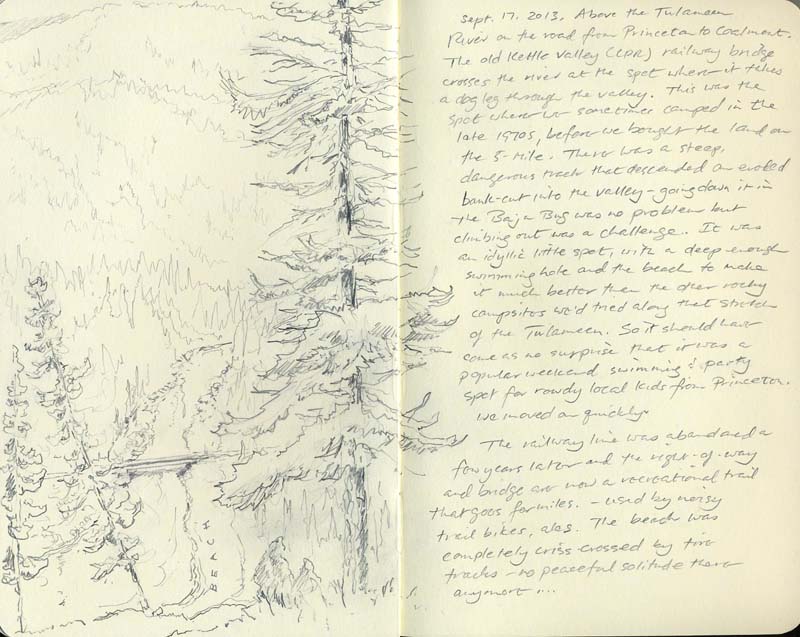 BEACH
Sept. 17. 2013. Above the Tulameen
River on the road from Princeton to Coalmont.
The old Kettle Valley (CPR) railway bridge
crosses the river at the spot where it takes
a dog leg through the valley. This was the
spot where we sometimes camped in the
late 1970s, before we bought the land on
the 5-mile. There was a steep,
dangerous track that descended an eroded
bank-cut into the valley – going down it in
the Baja Bug was no problem but
climbing out was a challenge. It was
an idyllic little spot, with a deep enough
swimming hole and the beach to make
it much better than the other rocky
campsites we'd tried along that stretch
of the Tulameen. So it should have
come as no surprise that it was a
popular weekend swimming & party
spot for rowdy local kids from Princeton.
we moved on quickly.
The railway line was abandoned a
few years later and the right-of-way
and bridge are now a recreational trail
that goes for miles. – used by noisy
trail bikes, alas. The beach was
completely criss crossed by tire
tracks – no peaceful solitude there
anymore ...